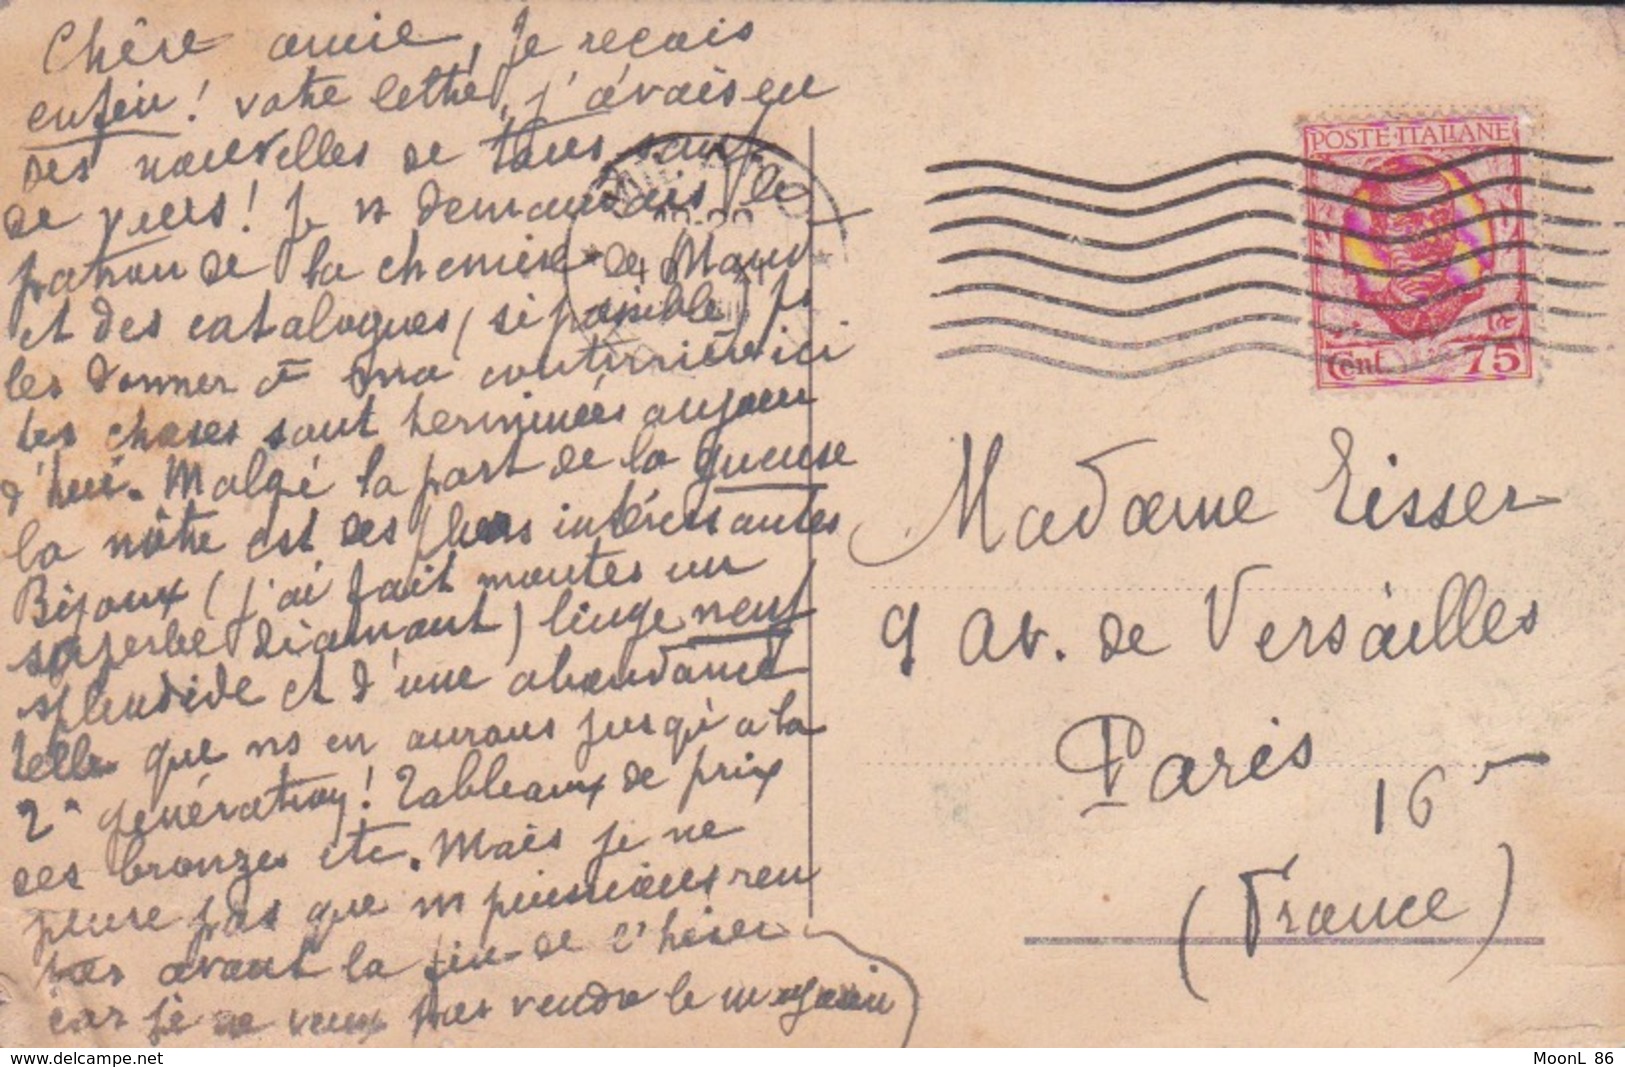 Chère amie, Je reçois
enfin! votre lettre, j'avais eu
des nouvelles de tous sauf
de vous! Je vs demandais le
patron de la chemise de
et des catalogues (si possible) pr
les donner à ma couturière ici
Les choses sont terminées aujour
d'hui. Malgé la part de la gueuse
la nôtre est des plus intéressantes
Bijoux (j'ai fait monter un
superbe diamant) linge neuf
splendide et d'une abondance
telle que ns en aurons jusqu'à la
2e génération! Tableaux de prix
des bronzes etc. Mais je ne
pense pas que ns puissions ren
trer avant la fin de l'hiver
car je ne veux pas vendre le magasin
POSTE·ITALIANE
Cent. 75
Madame Eisser
9 av. de Versailles
Paris
16e
(France)
MoonL 86
www.delcampe.net